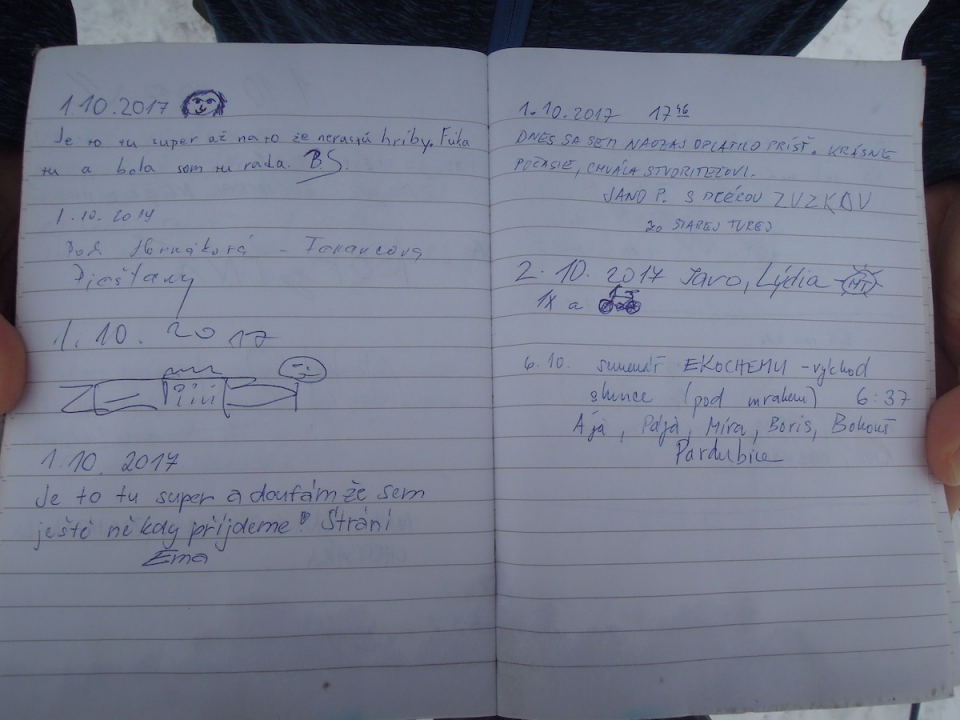 1.10.2017
Je to tu super až na to že nerastú hríby. Fúka
tu a bola som tu rada. B.S.
1.10.2017
Horňáková -
Piešťany
1.10.2017
1.10.2017
Je to tu super a doufám že sem
ještě někdy přijdeme! Strání
Ema
1.10.2017 17 46
DNES SA SEM NAOZAJ OPLATILO PRÍSŤ. KRÁSNE
POČASIE, CHVÁLA STVORITEĽOVI.
JANO P. S DCÉROU ZUZKOU
ZO STAREJ TUREJ
2.10.2017 Jaro, Lýdia
1x a
6.10. EKOCHEMU - východ
slunce (pod mrakem) 6:37
Ája, Pája, Míra, Boris, Bohouš
Pardubice